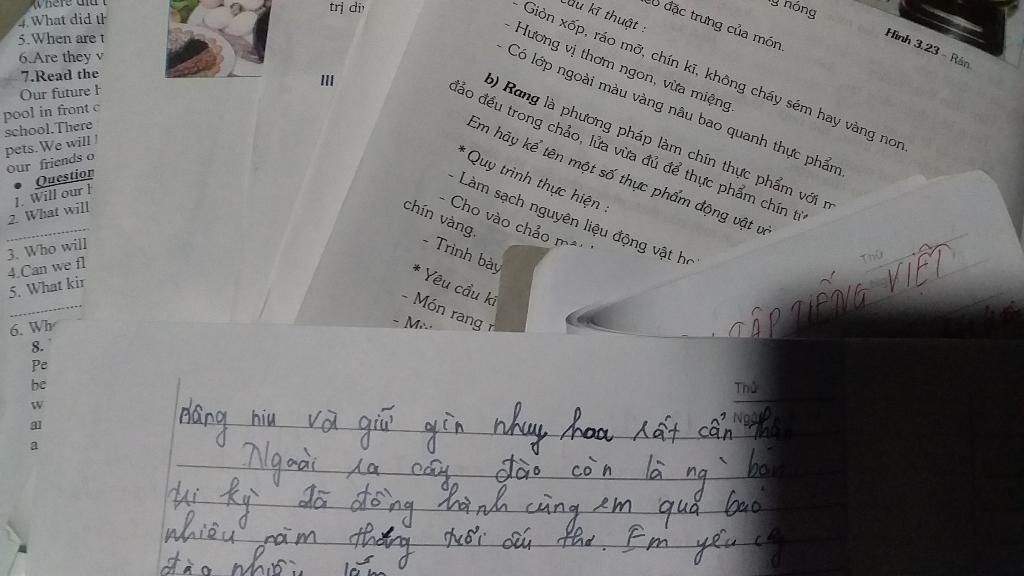 Where did t
4. What did th
5.When are t
6.Are they v
7.Read the
Our future h
pool in front o
school.There
pets.We will
our friends o
Question
1. Will our h
2. What will
3. Who will
4.Can we fl
5. What kin
6. Who
8.
Pe
be
w
a
trị din
III
đặc trưng của món.
nóng
Hình 3.23 - Rán.
kĩ thuật :
- Giòn xốp, ráo mỡ, chín kĩ, không cháy sém hay vàng non.
- Hương vị thơm ngon, vừa miệng.
- Có lớp ngoài màu vàng nâu bao quanh thực phẩm.
b) Rang là phương pháp làm chín thực phẩm với m
đảo đều trong chảo, lửa vừa đủ để thực phẩm chín từ
Em hãy kể tên một số thực phẩm động vật
* Quy trình thực hiện :
- Làm sạch nguyên liệu động vật ho
- Cho vào chảo
chín vàng.
- Trình bày
* Yêu cầu kĩ
- Món rang
Thứ
TẬP TIẾNG VIỆT
Thứ
Ngày
nâng niu và giữ gìn nhuỵ hoa rất cẩn thận
Ngoài ra cây đào còn là ng` bạn
tri kỷ đã đồng hành cùng em qua bao
nhiêu năm tháng tuổi ấu thơ. Em yêu cây
đào nhiều lắm